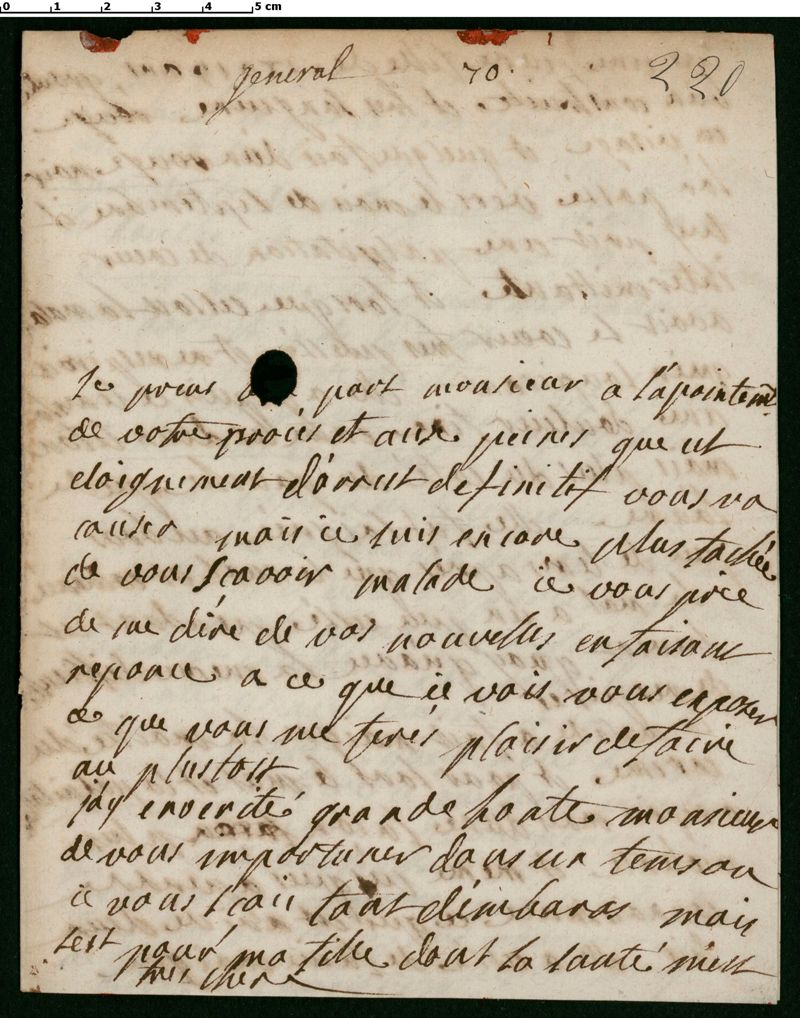 0 1 2 3 4 5 cm
general 70. 220
Je prens part monsieur a lápointemt
de votre procés et aux peines que cet
eloignement dárrest definitif vous va
causer mais ie suis encore plus fachée
de vous scavoir malade ie vous prie
de me dire de vos nouvelles en faisant
reponce a ce que ie vais vous exposer
ce que vous me ferés plaisir de faire
au plustost
jáy en verité grande honte monsieur
de vous importuner dans un tems ou
ie vous scais tant démbaras mais
cest pour ma fille dont la santé mest
tres chere